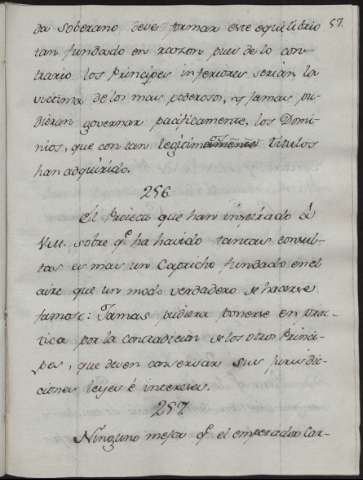 57.
da soberano deve tomar este equilibrio
tan fundado en razon pues de lo con-
trario los Principes inferiores serian la
victima de los mas poderosos, y jamas pu-
dieran governar pacificamente, los Domi-
nios, que con tan legitimamente titulos
han adquirido.
256.
El Proiecto que han inspirado â
V.M. sobre q.e ha havido tantas consul-
tas es mas un Capricho fundado en el
aire que un modo verdadero de hacerse
famoso: Jamas pudiera ponerse en prac-
tica por la contradicion de los otros Princi-
pes, que deven conservar sus jurisdic-
ciones leyes è intereses.
257
Ninguno mejor q.e el emperador Car-